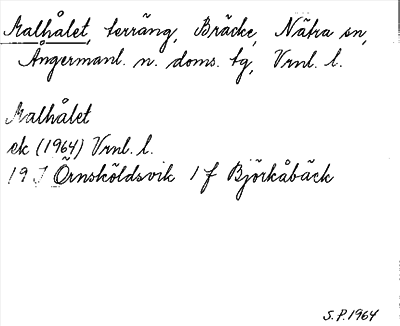 Malhålet, terräng, Bräcke, Nätra sn,
Ångermanl. n. doms. tg, Vrnl. l.
Malhålet
ek (1964) Vrnl. l.
19 J Örnsköldsvik 1 f Björkåbäck
S.P. 1964